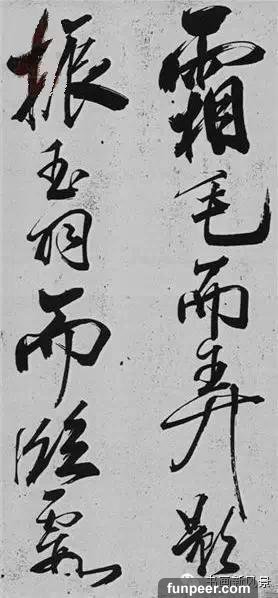 霜毛而弄影
振玉羽而臨霞
书画新风景
funpeer.com